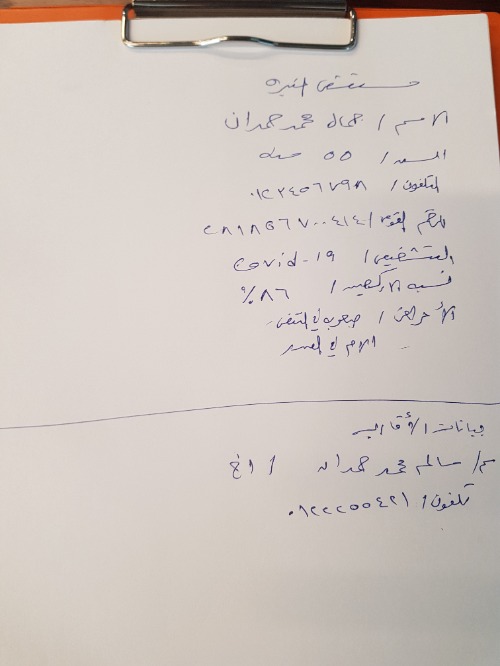 مستشفى الجيزة
الاسم / جمال محمد حمدان
السن / ٥٥ سنه
التلفون / ٠١٢٣٤٥٦٧٩٨
الرقم القومى / ٢٨١٨٥٦٧٠٠٤١٤
التشخيص / Covid-19
نسبه الاكسجين / ٨٦ %
الأعراض / صعوبه في التنفس
الام في الصدر
بيانات الأقارب
سالم محمد حمدان / اخ
تلفون / ٠١٢٢٢٥٥٤٢١